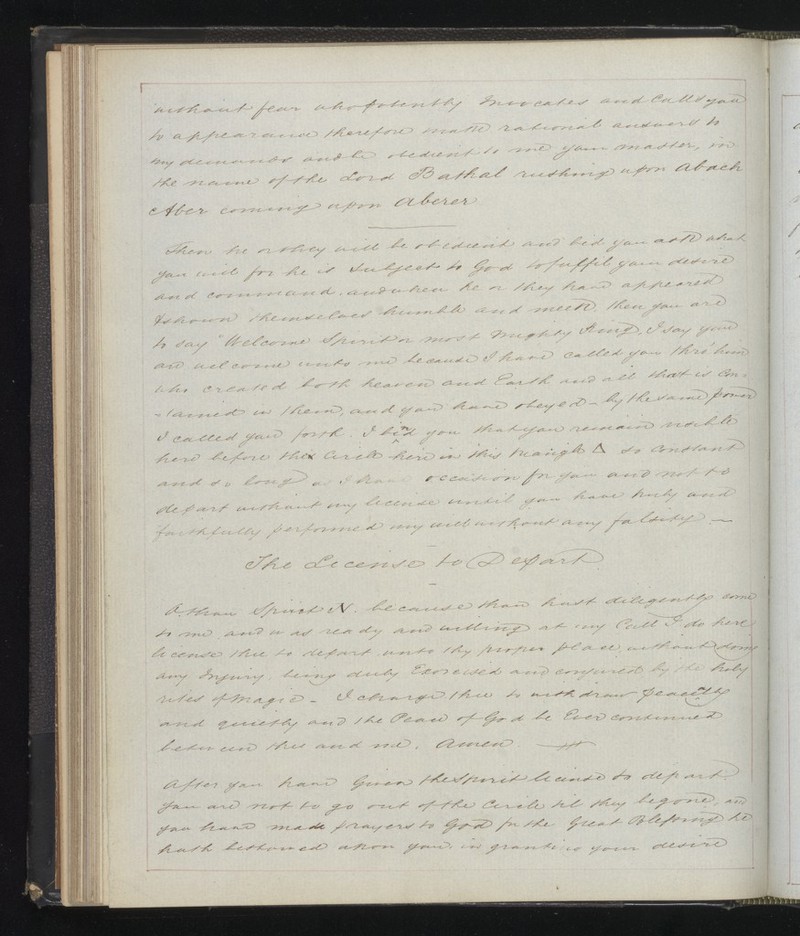 without fear who potently Invocates and Calls you
to appearance therefore make rational answers to
my demands and be obedient to me your master, in
the name of the Lord Bathal rushing upon Abach
Aber coming upon Aberer
Then he or they will be obedient and bid you ask what
you will for he is Subject to God to fulfil your desire
and command, and when he or they have appeared
& shown themselves humble and meek then you are
to say "Welcome Spirit or most mighty King, I say you
are welcome unto me because I have called you thro' him
who created both heaven and Earth and all that is Con-
-tained in them, and you have obeyed - by the same power
I called you forth. I bind you that you remain visible
here before the Circle here in this triangle Δ so constant
and so long as I have occasion for you and not to
depart without my license until you have truly and
faithfully performed my will without any falsity —
The License to Depart
O thou Spirit N. because thou hast diligently come
to me and was ready and willing at my Call I do here
license thee to depart unto thy proper place without doing
any Injury being duly Exorcised and conjured by the holy
rites of magic - I charge thee to withdraw peaceably
and quietly and the Peace of God be Ever continued
between thee and me. Amen.
After you have Given the Spirit license to depart
you are not to go out of the Circle til they be gone, and
you have made prayers to God for the Great Blessing he
hath bestowed upon you in granting your desire